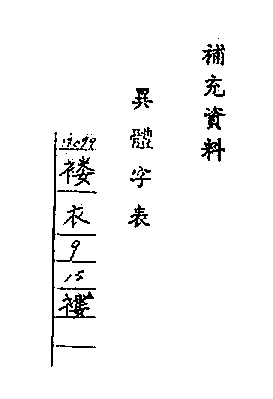 補充資料
異體字表
褛
衣
9
15
褸